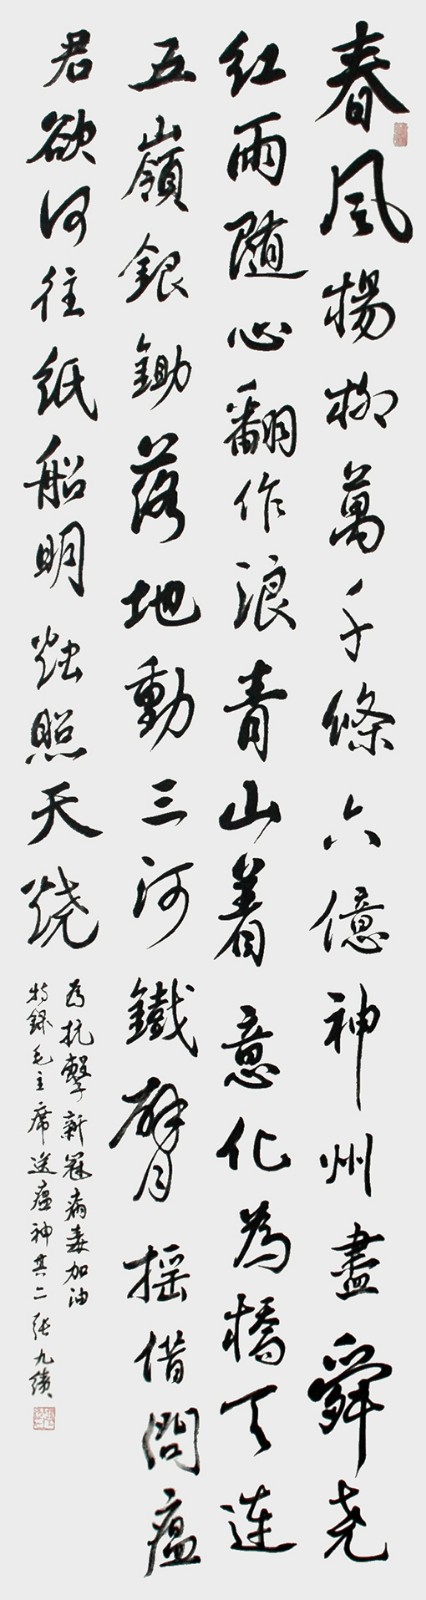 春风楊柳萬千條六億神州盡舜尧
红雨随心翻作浪青山着意化為橋天連
五嶺銀鋤落地動三河鐵臂摇借問瘟
君欲何往纸船明烛照天烧
为抗擊新冠病毒加油
特録毛主席送瘟神其二张九績